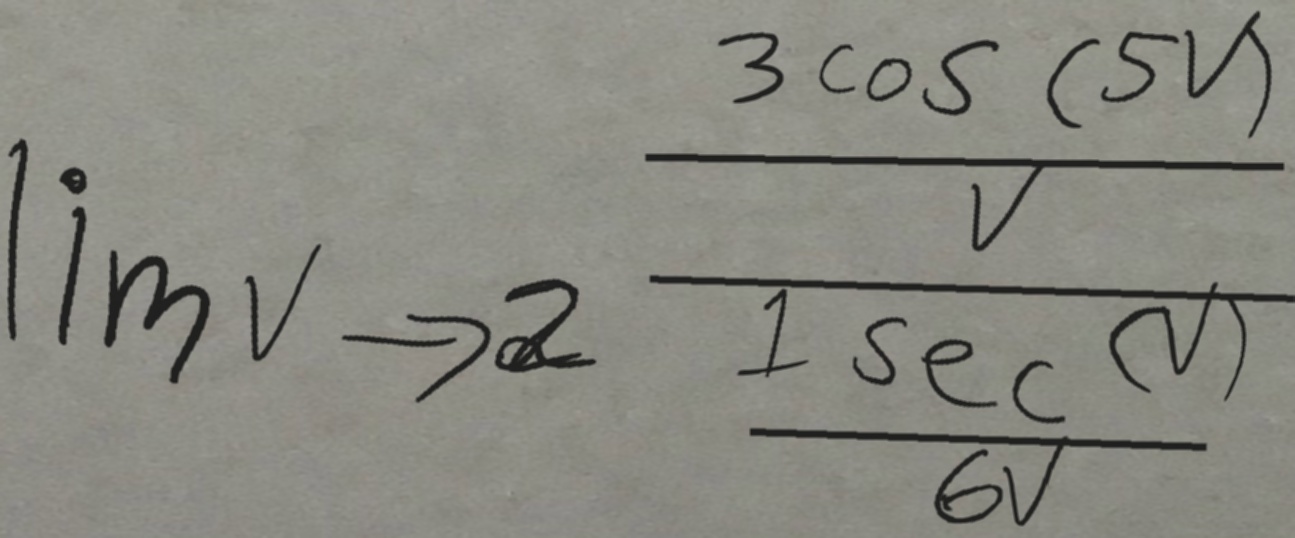 lim v→2 \frac{\frac{3 cos (5v)}{v}}{\frac{1 sec (v)}{6v}}